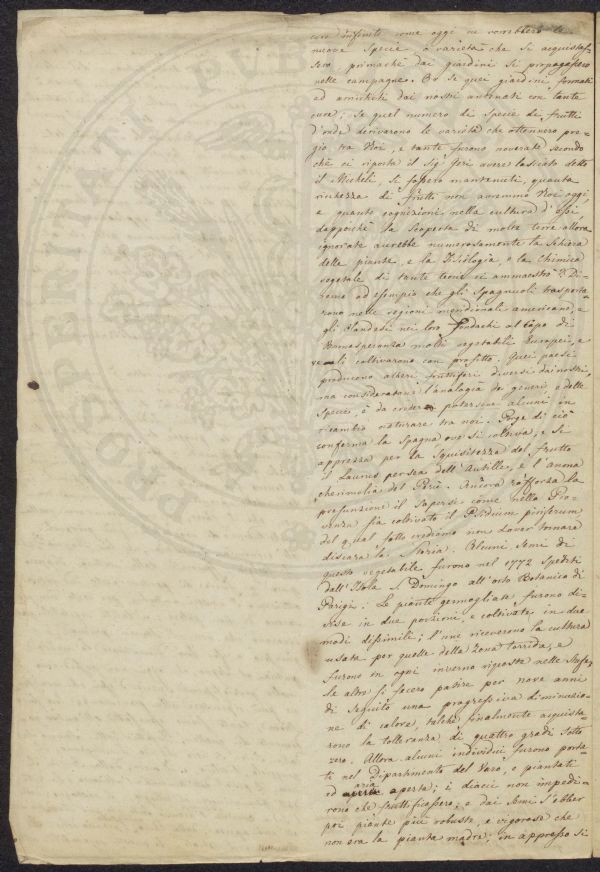 come oggi ne vorrebbero le
nuove Specie, o varietà che si acquistas-
sero, primachè dai giardini si propagassero
nelle campagne. Or se quei giardini formati
ed arrichiti dai nostri antenati con tante
cure; se quel numero di Specie de' frutti
d'onde derivarono le varietà che ottennero pre-
gio tra Noi, e tante furono noverate secondo
chè ci riporta il Sig. avere lasciato detto
il Micheli, si fossero mantenuti, quanta
richezza di frutti non avremmo Noi oggi,
e quante cognizioni nella cultura d'essi,
dappoichè la scoperta di molte terre allora
ignorate accrebbe numerosamente la schiera
delle piante, e la Fisiologia, e la Chimica
vegetale di tante teorie ci ammaestrò? Di-
remo ad esempio che gli Spagnuoli trasporta-
rono nelle regioni meridionali americane, e
gli Olandesi nei loro fondachi al Capo di
Buonasperanza molti vegetabili Europei, e
ve li coltivarono con profitto. Quei paesi
producono alberi fruttiferi diversi dai nostri,
ma considerata l'analogia de' generi, e delle
Specie, è da creder potersene alcuni in
ricambio naturare tra noi. Porge di ciò
conferma la Spagna ove si coltiva, e si
apprezza per la squisitezza del frutto
il Laurus persea dell'Antille, e l'anona
cherimolia del Perù. Ancora rafforza la
presunzione il sapersi come nella Pro-
venza sia coltivato il Psidium piriferum
del qual fatto crediamo non dover tornare
discara la Storia. Alcuni semi di
questo vegetabile furono nel 1772 spediti
dall'Isola S. Domingo all'orto Botanico di
Parigi. Le piante germogliate furono di-
vise in due porzioni, e coltivate in due
modi dissimili; l'une riceverono la cultura
usata per quelle della Zona torrida, e
furono in ogni inverno riposte nelle stufe,
le altre si fecero patire per nove anni
di seguito una progressiva diminuzio-
ne di calore, talchè finalmente acquista-
rono la tolleranza di quattro gradi sotto
zero. Allora alcuni individui furono porta-
ti nel Dipartimento del Varo, e piantati
ad aria aperta; i diacci non impedi-
rono che fruttificassero; e dai semi s'ebber
poi piante più robuste, e vigorose che
non era la pianta madre; in appresso si